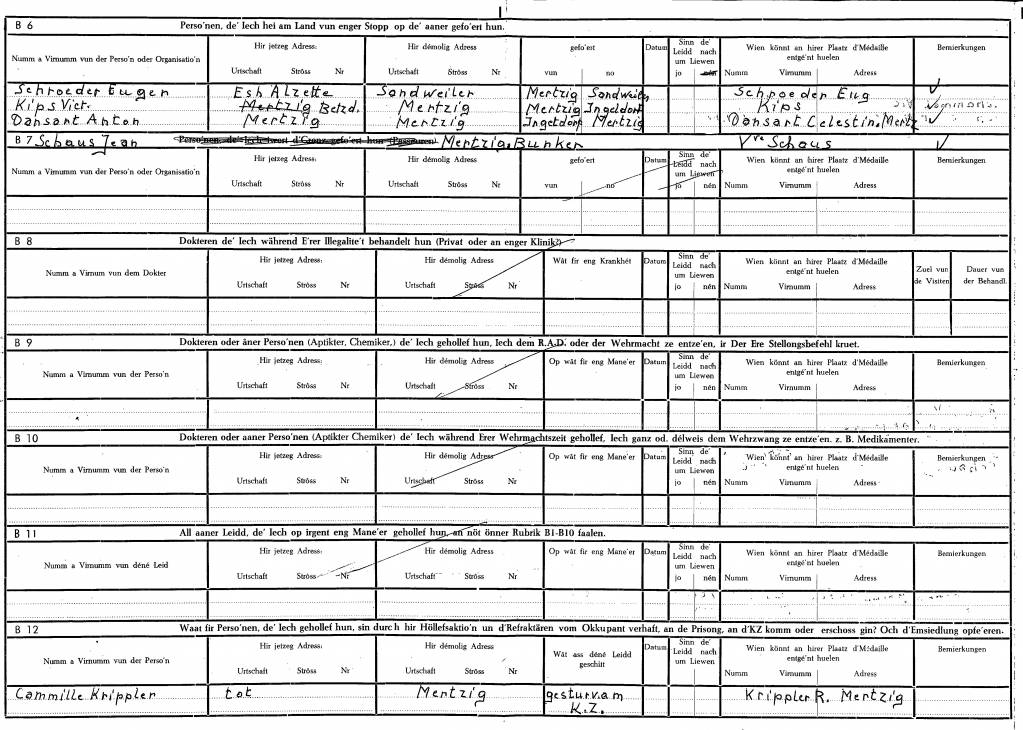 B 6 Perso'nen, de' Iech hei am Land vun enger Stopp op de' aaner gefo'ert hun.
Numm a Virnumm vun der Perso'n oder Organisatio'n Hir jetzeg Adress: Hir démolig Adress gefo'ert Datum Sinn de' Leidd nach um Liewen Wien könnt an hirer Plaatz d'Médaille entgé'nt huelen Bemierkungen
Urtschaft Ströss Nr Urtschaft Ströss Nr vun no jo nén Numm Virnumm Adress
Schroeder Eugen Esh Alzette Sandweiler Mertzig Sandweiler Schroeder Eug
Kips Vict. Mertzig Betzd. Mertzig Mertzig Ingeldorf Kips
Dansart Anton Mertzig Mertzig Ingeldorf Mertzig Dansart Celestin. Mertz
B 7 Schaus Jean Perso'nen, de' Iech iwert d'Grenz gefo'ert hun (Passeuren) Mertzig. Bunker Vve Schaus
Numm a Virnumm vun der Perso'n oder Organisatio'n Hir jetzeg Adress: Hir démolig Adress gefo'ert Datum Sinn de' Leidd nach um Liewen Wien könnt an hirer Plaatz d'Médaille entgé'nt huelen Bemierkungen
Urtschaft Ströss Nr Urtschaft Ströss Nr vun no jo nén Numm Virnumm Adress
B 8 Dokteren de' Iech während E'rer Illegalite't behandelt hun (Privat oder an enger Klinik?)
Numm a Virnum vun dem Dokter Hir jetzeg Adress: Hir démolig Adress Wât fir eng Krankhét Datum Sinn de' Leidd nach um Liewen Wien könnt an hirer Plaatz d'Médaille entgé'nt huelen Zuel vun de Visiten Dauer vun der Behandl.
Urtschaft Ströss Nr Urtschaft Ströss Nr jo nén Numm Virnumm Adress
B 9 Dokteren oder âner Perso'nen (Aptikter, Chemiker,) de' Iech gehollef hun, Iech dem R.A.D. oder der Wehrmacht ze entze'en, ir Der Ere Stellongsbefehl kruet.
Numm a Virnumm vun der Perso'n Hir jetzeg Adress: Hir démolig Adress Op wât fir eng Mane'er Datum Sinn de' Leidd nach um Liewen Wien könnt an hirer Plaatz d'Médaille entgé'nt huelen Bemierkungen
Urtschaft Ströss Nr Urtschaft Ströss Nr jo nén Numm Virnumm Adress
B 10 Dokteren oder aaner Perso'nen (Aptikter Chemiker) de' Iech während Erer Wehrmachtszeit gehollef, Iech ganz od. délweis dem Wehrzwang ze entze'en. z. B. Medikamenter.
Numm a Virnumm vun der Perso'n Hir jetzeg Adress: Hir démolig Adress Op wât fir eng Mane'er Datum Sinn de' Leidd nach um Liewen Wien könnt an hirer Plaatz d'Médaille entgé'nt huelen Bemierkungen
Urtschaft Ströss Nr Urtschaft Ströss Nr jo nén Numm Virnumm Adress
B 11 All aaner Leidd, de' Iech op irgent eng Mane'er gehollef hun, an nöt önner Rubrik B1-B10 faalen.
Numm a Virnumm vun déné Leid Hir jetzeg Adress: Hir démolig Adress Op wât fir eng Mane'er Datum Sinn de' Leidd nach um Liewen Wien könnt an hirer Plaatz d'Médaille entgé'nt huelen Bemierkungen
Urtschaft Ströss Nr Urtschaft Ströss Nr jo nén Numm Virnumm Adress
B 12 Waat fir Perso'nen, de' Iech gehollef hun, sin durch hir Höllefsaktio'n un d'Refraktären vom Okkupant verhaft, an de Prisong, an d'KZ komm oder erschoss gin? Och d'Emsiedlung opfe'eren.
Numm a Virnumm vun der Perso'n Hir jetzeg Adress: Hir démolig Adress Wât ass déné Leidd geschitt Datum Sinn de' Leidd nach um Liewen Wien könnt an hirer Plaatz d'Médaille entgé'nt huelen Bemierkungen
Urtschaft Ströss Nr Urtschaft Ströss Nr jo nén Numm Virnumm Adress
Cammille Krippler tot Mertzig gesturv. am Krippler R. Mertzig
K.Z.